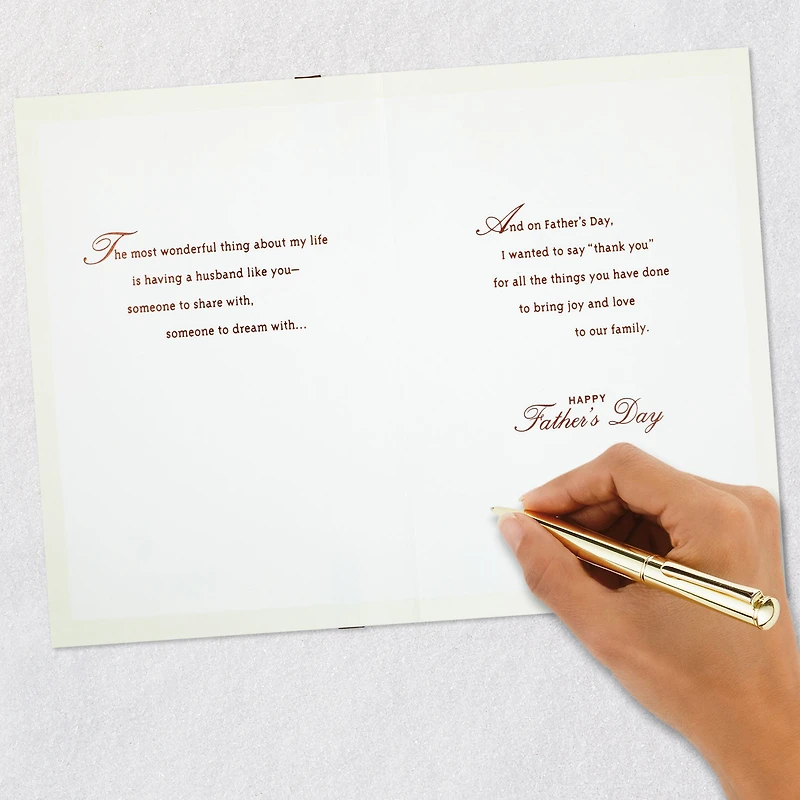 The most wonderful thing about my life
is having a husband like you—
someone to share with,
someone to dream with...
And on Father's Day,
I wanted to say “thank you”
for all the things you have done
to bring joy and love
to our family.
HAPPY
Father's Day